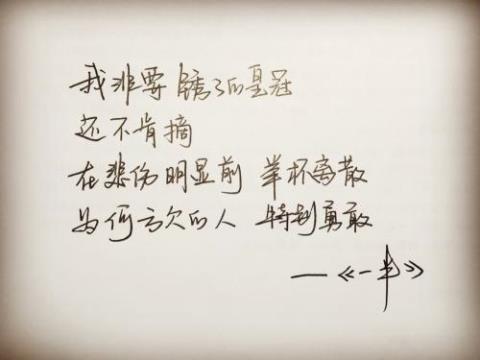 我非要锈了的皇冠
还不肯摘
在悲伤明显前 举杯离散
为何亏欠的人 特别勇敢
——《一半》